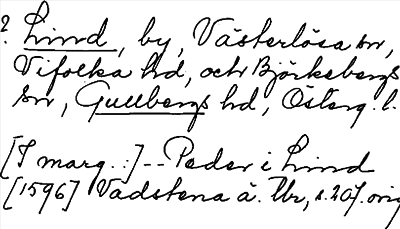 ? Lind, by, Västerlösa sn,
Vifolka hd, och Björkebergs
sn, Gullbergs hd, Österg. l.
[I marg.:] -- Peder i Lind
[1596] Vadstena ä. Ubr, s. 207. orig